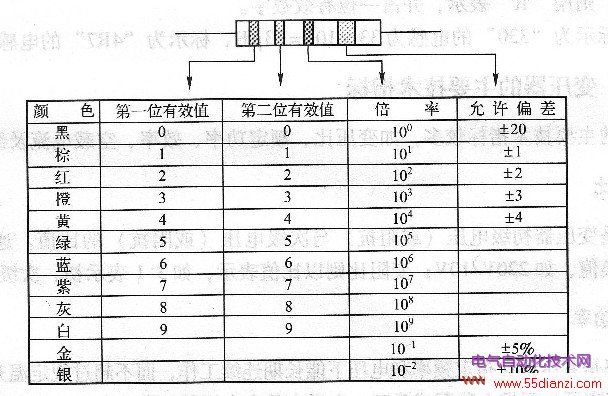 颜 色 第一位有效值 第二位有效值 倍 率 允许偏差
黑 0 0 10⁰ ±20
棕 1 1 10¹ ±1
红 2 2 10² ±2
橙 3 3 10³ ±3
黄 4 4 10⁴ ±4
绿 5 5 10⁵
蓝 6 6 10⁶
紫 7 7 10⁷
灰 8 8 10⁸
白 9 9 10⁹
金 10⁻¹ ±5%
银 10⁻² ±10%
电气自动化技术网
www.55dianzi.com